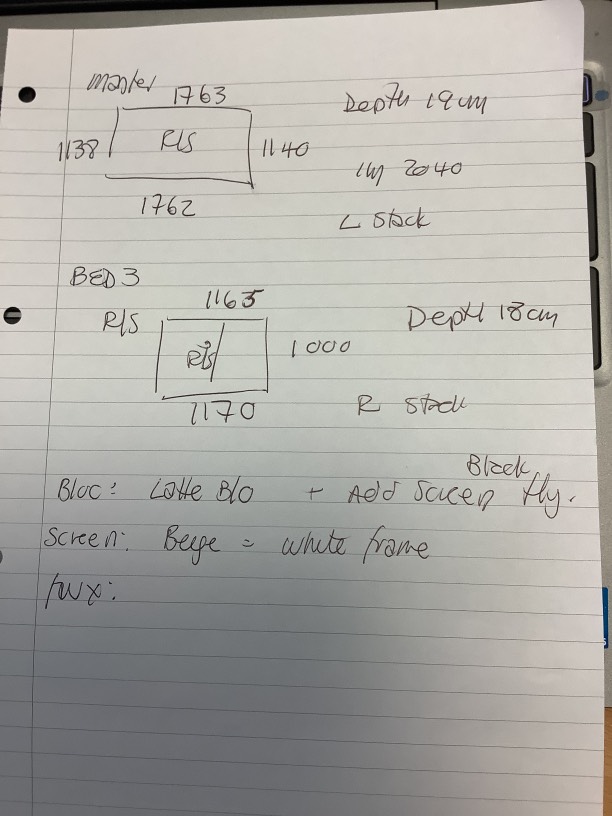 Master
1763
Depth 19cm
1138
R/S
1140
1762
L Stack
BED 3
1165
R/S
Depth 18cm
R/S
1000
1170
R Stack
Black
Bloc: Latte Blo + Add Screen fly.
Screen: Beige = white frame